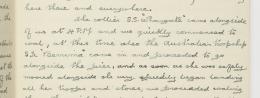 here there and everywhere.
The collier S.S. "Wangate" came alongside
of us at 4 P.M and we quickly commenced to
coal, at this time also the Australian troopship
S.S. "Benalla" came in and proceeded to go
alongside the pier, and as soon as she was safely
moored alongside she very speedily began landing
all her troops and stores, we proceeded coaling